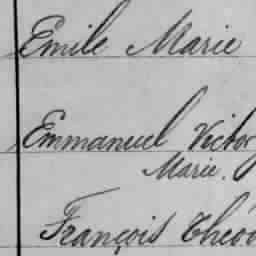 Emile Marie
Emmanuel Victor
Marie.
François Théo